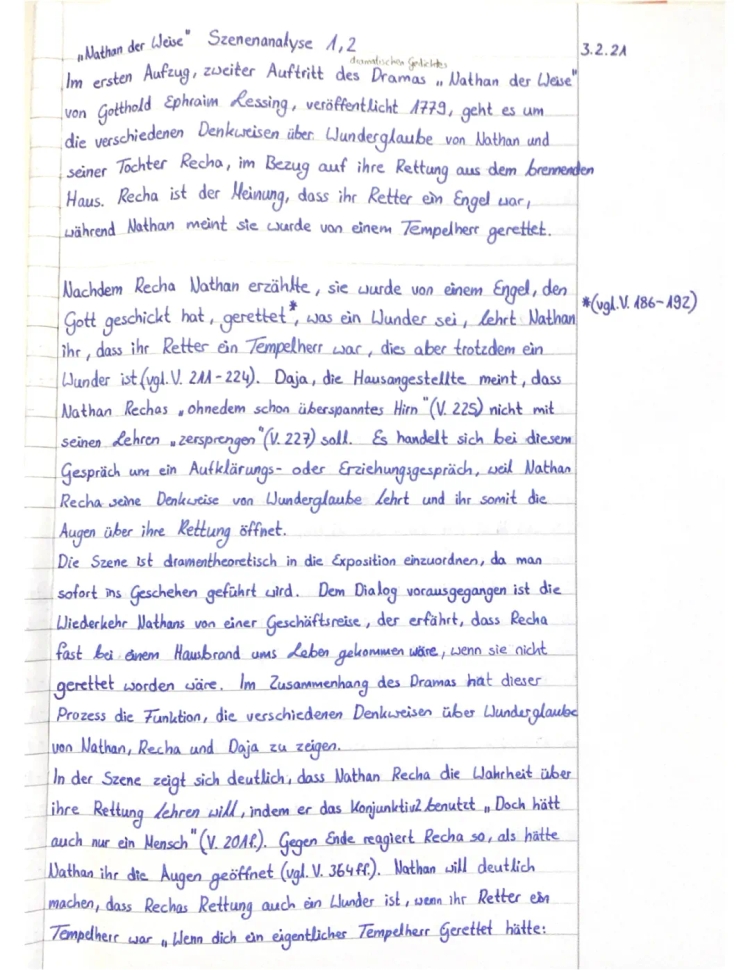 „Nathan der Weise" Szenenanalyse 1,2
3.2.21
dramatischen Gedichtes
Im ersten Aufzug, zweiter Auftritt des Dramas „Nathan der Weise"
von Gotthold Ephraim Lessing, veröffentlicht 1779, geht es um
die verschiedenen Denkweisen über Wunderglaube von Nathan und
seiner Tochter Recha, im Bezug auf ihre Rettung aus dem brennenden
Haus. Recha ist der Meinung, dass ihr Retter ein Engel war,
während Nathan meint sie wurde von einem Tempelherr gerettet.
Nachdem Recha Nathan erzählte, sie wurde von einem Engel, den
*(vgl. V. 186-192)
Gott geschickt hat, gerettet*, was ein Wunder sei, lehrt Nathan
ihr, dass ihr Retter ein Tempelherr war, dies aber trotzdem ein
Wunder ist (vgl. V. 211-224). Daja, die Hausangestellte meint, dass
Nathan Rechas „ohnedem schon überspanntes Hirn" (V. 225) nicht mit
seinen Lehren „zersprengen" (V. 227) soll. Es handelt sich bei diesem
Gespräch um ein Aufklärungs- oder Erziehungsgespräch, weil Nathan
Recha seine Denkweise von Wunderglaube lehrt und ihr somit die
Augen über ihre Rettung öffnet.
Die Szene ist dramentheoretisch in die Exposition einzuordnen, da man
sofort ins Geschehen geführt wird. Dem Dialog vorausgegangen ist die
Wiederkehr Nathans von einer Geschäftsreise, der erfährt, dass Recha
fast bei einem Hausbrand ums Leben gekommen wäre, wenn sie nicht
gerettet worden wäre. Im Zusammenhang des Dramas hat dieser
Prozess die Funktion, die verschiedenen Denkweisen über Wunderglaube
von Nathan, Recha und Daja zu zeigen.
In der Szene zeigt sich deutlich, dass Nathan Recha die Wahrheit über
ihre Rettung lehren will, indem er das Konjunktiv2 benutzt „Doch hätt
auch nur ein Mensch" (V. 201f.). Gegen Ende reagiert Recha so, als hätte
Nathan ihr die Augen geöffnet (vgl. V. 364ff.). Nathan will deutlich
machen, dass Rechas Rettung auch ein Wunder ist, wenn ihr Retter ein
Tempelherr war „Wenn dich ein eigentliches Tempelherr Gerettet hätte: